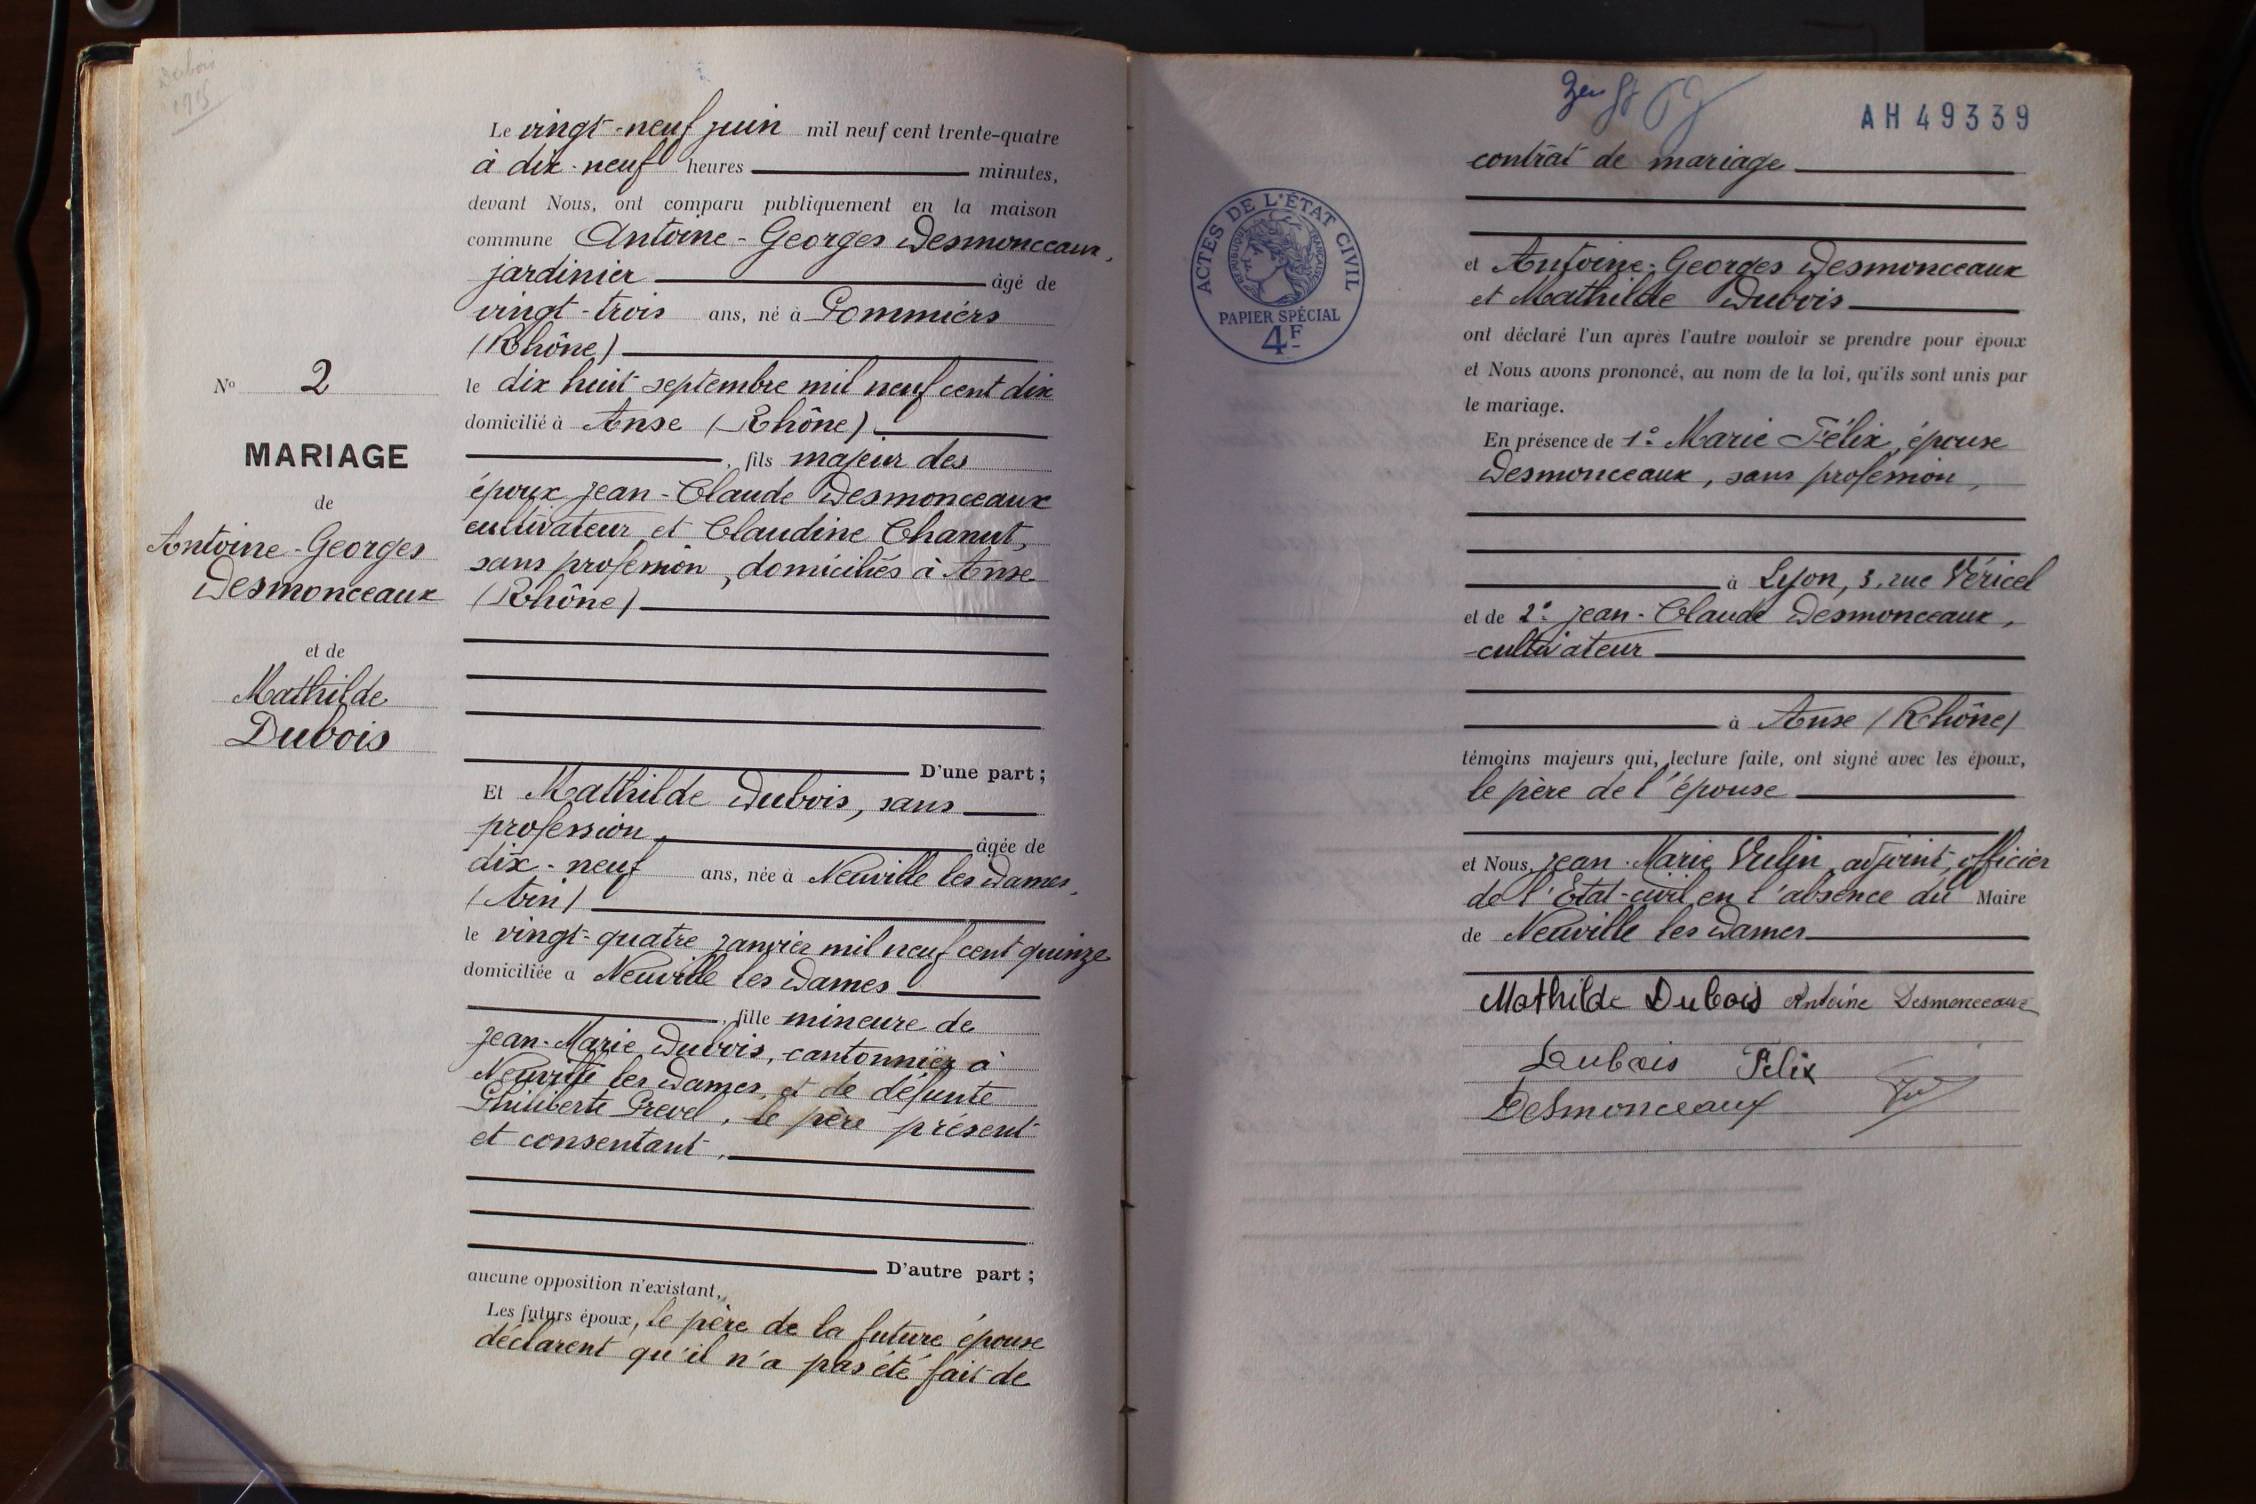 Dubois
1915
Le vingt-neuf juin mil neuf cent trente-quatre
à dix-neuf heures minutes,
devant Nous, ont comparu publiquement en la maison
commune Antoine-Georges Desmonceaux,
jardinier âgé de
vingt-trois ans, né à Pommiérs
(Rhône)
le dix huit septembre mil neuf cent dix
domicilié à Anse (Rhône)
, fils majeur des
époux Jean-Claude Desmonceaux
cultivateur et Claudine Chanut,
sans profession, domiciliés à Anse
(Rhône)
D'une part ;
Et Mathilde Dubois, sans
profession, âgée de
dix-neuf ans, née à Neuville les Dames,
(Ain)
le vingt-quatre janvier mil neuf cent quinze
domiciliée a Neuville les Dames
, fille mineure de
Jean-Marie Dubois, cantonnier à
Neuville les Dames, et de défunte
Philiberte Prevel, le père présent
et consentant,
D'autre part ;
aucune opposition n'existant,
Les futurs époux, le père de la future épouse
déclarent qu'il n'a pas été fait de
N° 2
MARIAGE
de
Antoine-Georges
Desmonceaux
et de
Mathilde
Dubois
AH 49339
ACTES DE L'ÉTAT CIVIL
RÉPUBLIQUE FRANÇAISE
PAPIER SPÉCIAL
4F
contrat de mariage
et Antoine-Georges Desmonceaux
et Mathilde Dubois
ont déclaré l'un après l'autre vouloir se prendre pour époux
et Nous avons prononcé, au nom de la loi, qu'ils sont unis par
le mariage.
En présence de 1° Marie Félix, épouse
Desmonceaux, sans profession,
à Lyon, 3, rue Véricel
et de 2° Jean-Claude Desmonceaux,
cultivateur
à Anse (Rhône)
témoins majeurs qui, lecture faite, ont signé avec les époux,
le père de l'épouse
et Nous, Jean-Marie Vulin, adjoint, officier
de l'État-civil en l'absence du Maire
de Neuville les Dames
Mathilde Dubois Antoine Desmonceaux
Dubois Félix
Desmonceaux